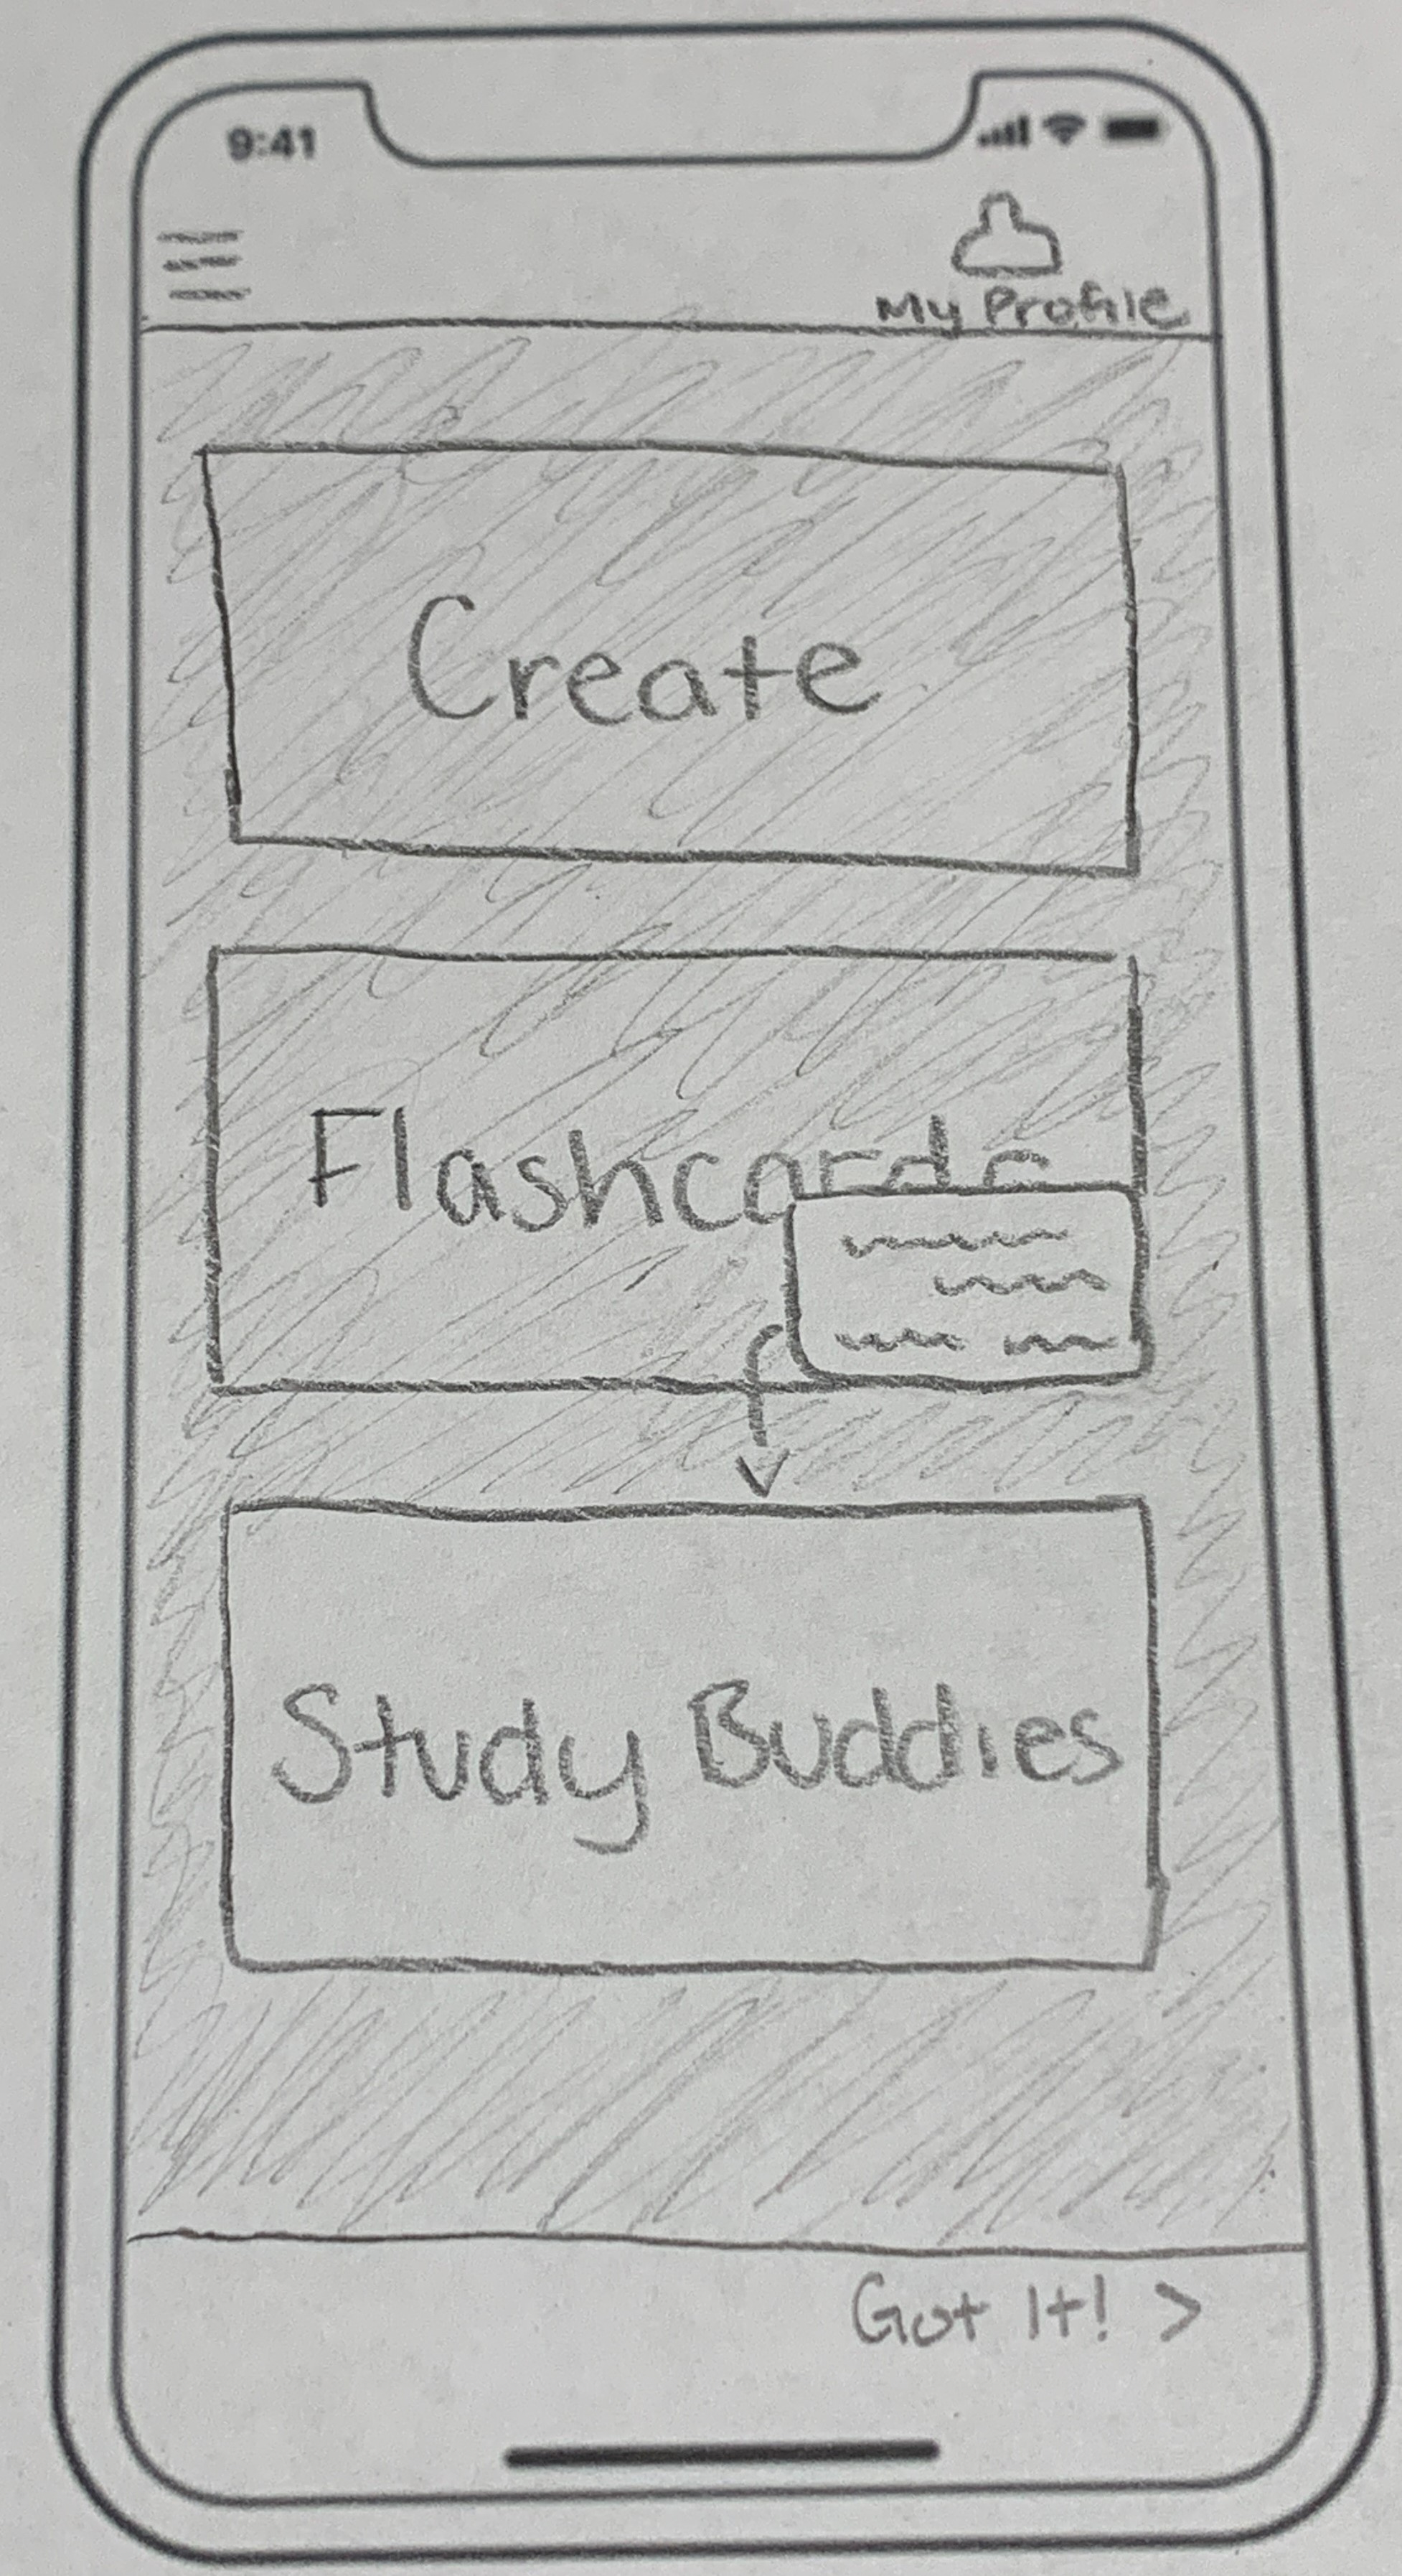 9:41
My Profile
Create
Flashcards
Study Buddies
Got It! >